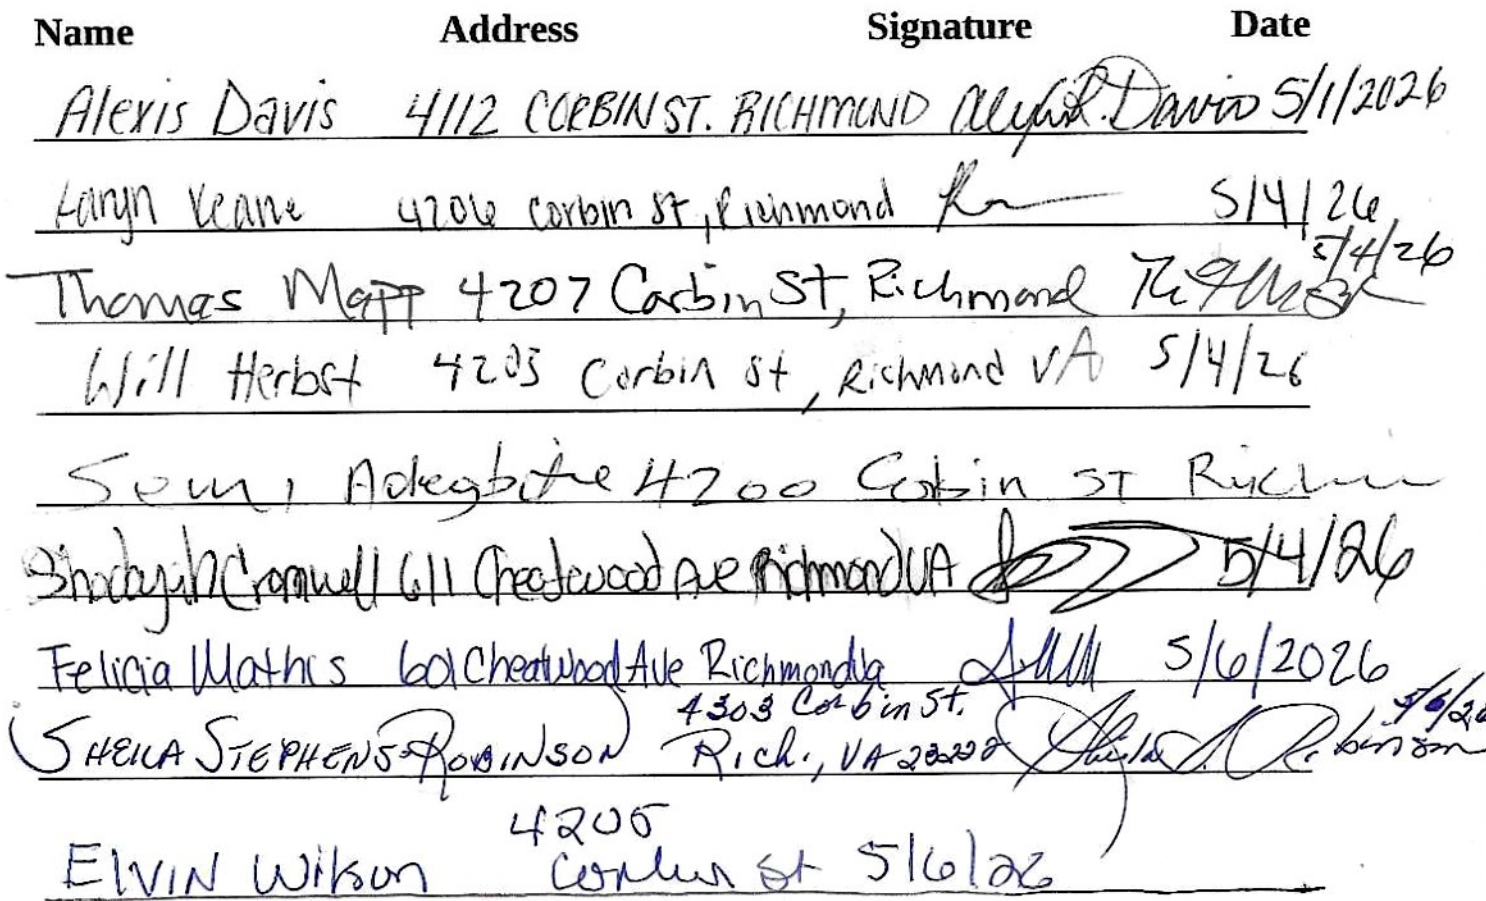 Name Address Signature Date
Alexis Davis 4112 CORBIN ST. RICHMOND Davis 5/1/2026
Keane 4206 Corbin St, Richmond 5/4/26
Thomas Mapp 4207 Corbin St, Richmond 5/4/26
Will Herbst 4203 Corbin St, Richmond VA 5/4/26
Adegbite 4200 Corbin ST
Cromwell 611 Cheatwood Ave Richmond VA 5/4/26
Felicia Mathis 601 Cheatwood Ave Richmond Va 5/6/2026
4303 Corbin St.
SHEILA STEPHENS-ROBINSON Rich., VA 23222 Sheila S. Robinson 5/6/26
4205
ElVIN Wilson St 5/6/26